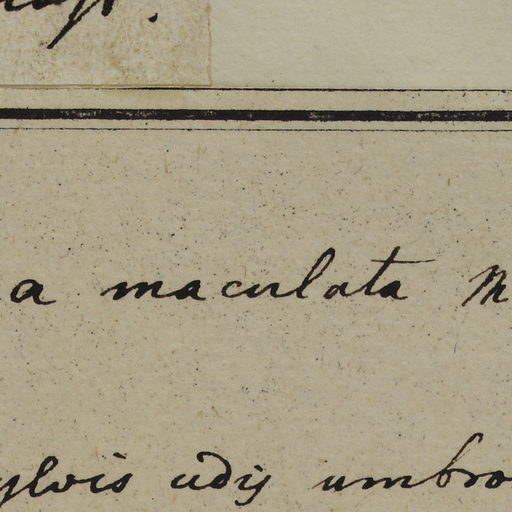 a maculata M
ylvis udis umbro